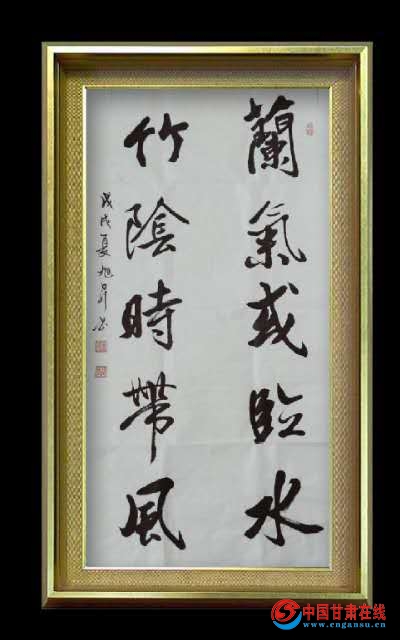 蘭氣或臨水
竹陰時帶風
戊戌夏旭昇书
中国甘肃在线
www.cngansu.cn